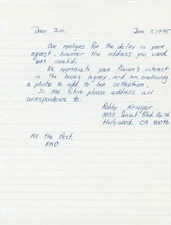 Dear Jim, Jan 7, 1995
Our apologies for the delay in your
request, however the address you used
was invalid.
We appreciate your interest
in the band's legacy, and am enclosing
a photo to add to the collection.
In the future please address all
correspondence to:
Robby Krieger
Sunset Blvd.
Hollywood, CA 90046
All the Best,